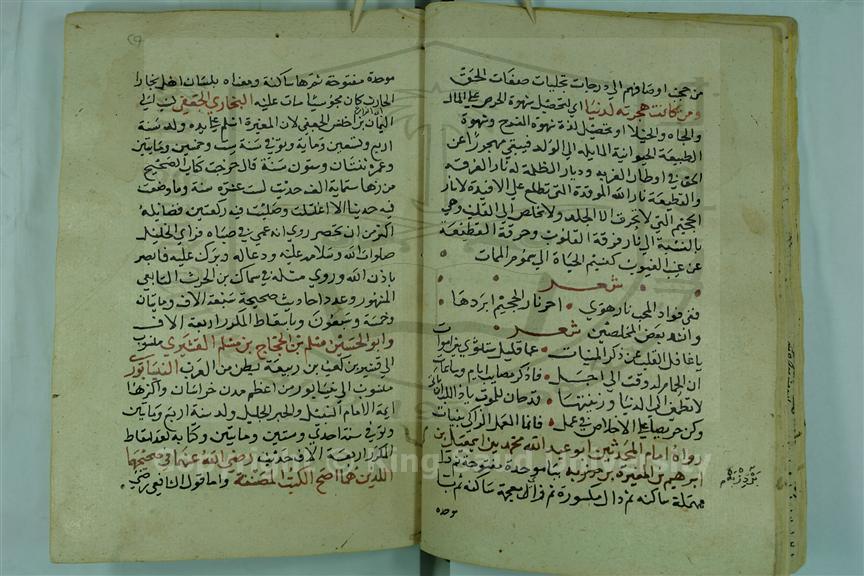 من محو اوصافهم الى درجات تجليات صفات الحق
ومن كانت هجرته لدنيا اي لتحصيل شهوة الحرص على المال
والجاه والخيلاء او تحصيل لذة شهوة الفرج وشهوة
الطبيعة الحيوانية المايلة الى الولد فيبقى مهجورا عن
الحق في اوطار الغربة وديار الظلمة له نار الفرقة
والقطيعة نار الله الموقدة التي تطلع على الافئدة لا نار
الجحيم التي لا تحرق الا الجلد ولا تخلص الى القلب وهي
بالنسبة الى نار فرقة القلوب وحرقة القطيعة
عن غيب الغيوب كنسيم الحياة الى سموم الممات
شعر
ففي فواد المحب نار هوى احر نار الجحيم ابردها
وانشد بعض المخلصين شعر
يا غافل القلب عن ذكر المنيات عما قليل ستثوى بين اموات
ان الحمام له وقت الى اجل فاذكر مصايب ايام وساعات
لا تطمئن الى الدنيا وزينتها قد حان للموت يا ذا اللب ان ياتي
وكن حريصا على الاخلاص في عمل فانما العمل الزاكي بنيات
رواه امام المحدثين ابو عبد الله محمد بن اسمعيل بن
ابرهيم بن المغيرة بن بردزبه بباء موحدة مفتوحة ثم راء
مهملة ساكنة ثم دال مكسورة ثم زاي معجمة ساكنة ثم باء
بَرْدِزْبَه
موحده
موحدة مفتوحة ثم هاء ساكنة ومعناه بلسان اهل بخارا
الحارث كان مجوسيا مات عليه البخاري الجعفي نسب الى
اليمان بن اخنس الجعفي لان المغيرة اسلم على يده ولد سنة
اربع وتسعين وماية وتوفي في سنة ست وخمسين ومايتين
وعمره ثنتان وستون سنة قال خرجت كتاب الصحيح
من زها ستماية الف حديث لست عشرة سنة وما وضعت
فيه حديثا الا اغتسلت وصليت فيه ركعتين فضايله
اكثر من ان تحصر روي انه عمي في صباه فراى الخليل
صلوات الله وسلامه عليه ودعا له وبرك عليه فابصر
باذن الله وروي مثله في سماك بن الحرث التابعي
المشهور وعدد احاديث صحيحة سبعة الاف ومايتان
وخمسة وسبعون وباسقاط المكرر اربعة الاف
وابو الحسين مسلم بن الحجاج بن مسلم القشيري منسوب
الى قشير بن كعب بن ربيعة بطن من العرب النيسابوري
منسوب الى نيسابور من اعظم مدن خراسان واكثرها
ايمة الامام النبيل والحبر الجليل ولد سنة اربع ومايتين
وتوفي في سنة احدي وستين ومايتين وكتابه بعد اسقاط
المكرر اربعة الاف حديث رضي الله عنهما في صحيحيهما
اللذين هما اصح الكتب المصنفة واما قول الشافعي رضي